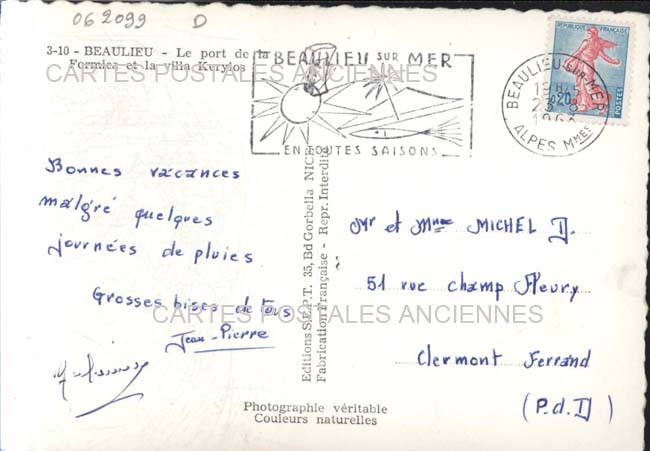 062099 D
3-10 - BEAULIEU - Le port de la
Formica et la villa Kerylos
CARTES POSTALES ANCIENNES
BEAULIEU SUR MER
EN TOUTES SAISONS
BEAULIEU SUR MER
ALPES Mmes
REPUBLIQUE FRANÇAISE
0,20
POSTES
Bonnes vacances
malgré quelques
journées de pluies
Grosses bises de tous
Jean-Pierre
Editions S.E.P.T. 35, Bd Gorbella NICE
Fabrication Française - Repr. Interdite
Mr et Mme MICHEL D.
51 rue champ Fleury
Clermont Ferrand
(P.d.D)
CARTES POSTALES ANCIENNES
Photographie véritable
Couleurs naturelles